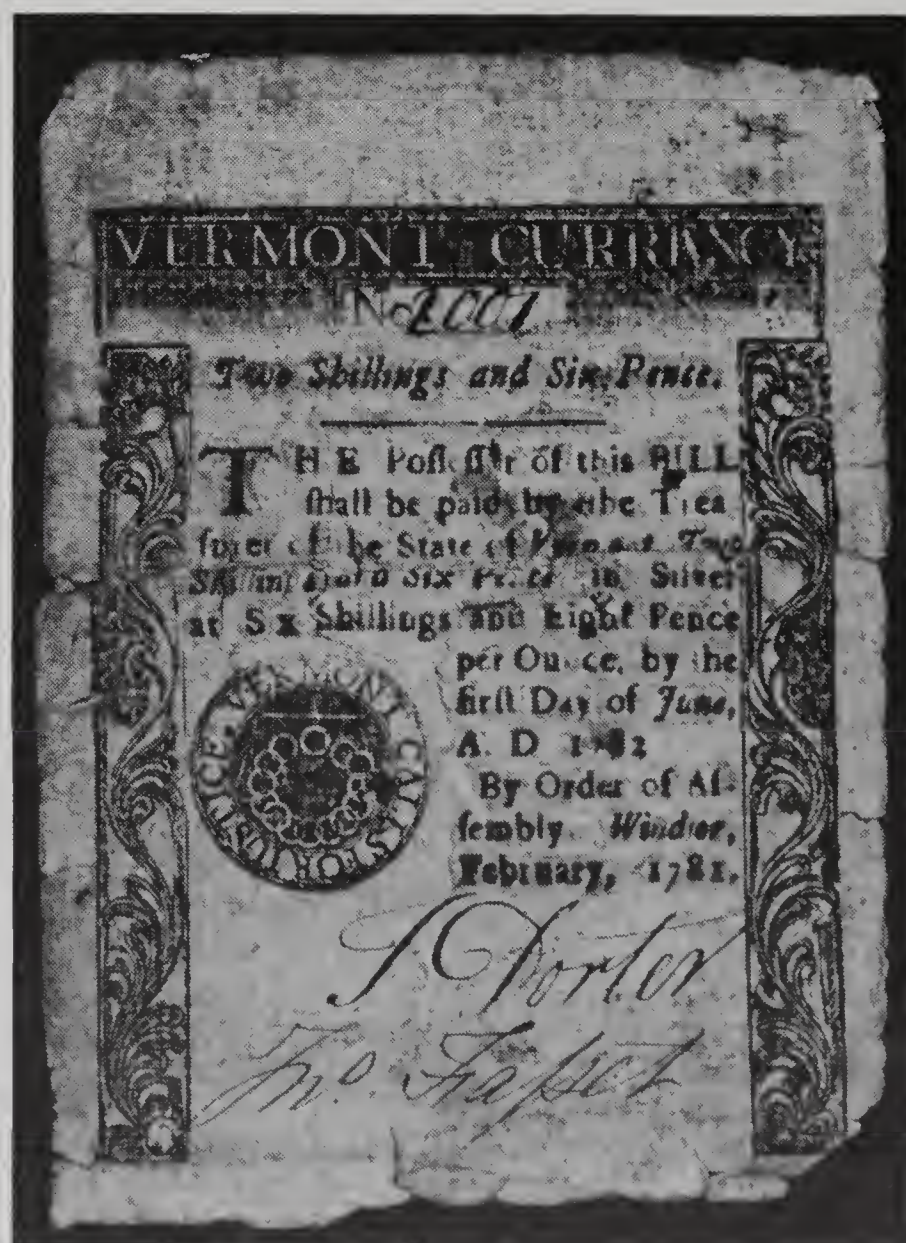 VERMONT CURRENCY.
No 2001
Two Shillings and Six Pence.
THE Poſſeſſor of this BILL
ſhall be paid by the Trea
ſurer of the State of Vermont, Two
Shillings and Six Pence in Silver
at Six Shillings and Eight Pence
per Ounce, by the
firſt Day of June,
A. D 1782
By Order of Aſ-
ſembly. Windsor,
February, 1781.
VERMONT CALLS FOR JUSTICE.
S Porter
Jno Fasset